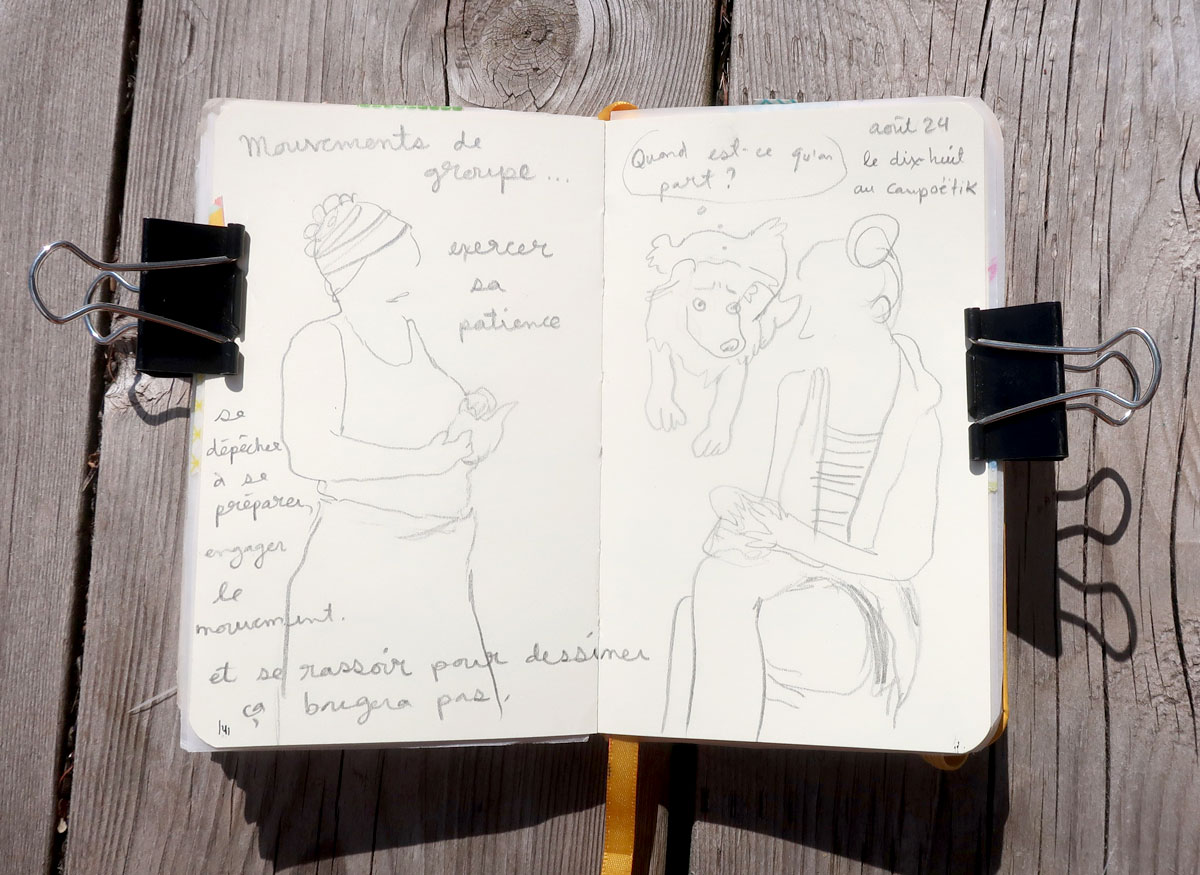 Mouvements de
groupe...
exercer
sa
patience
se
dépêcher
à se
préparer,
engager
le
mouvement.
et se rassoir pour dessiner
ça bougera pas.
141
Quand est-ce qu'on
part ?
août 24
le dix huit
au campoëtik